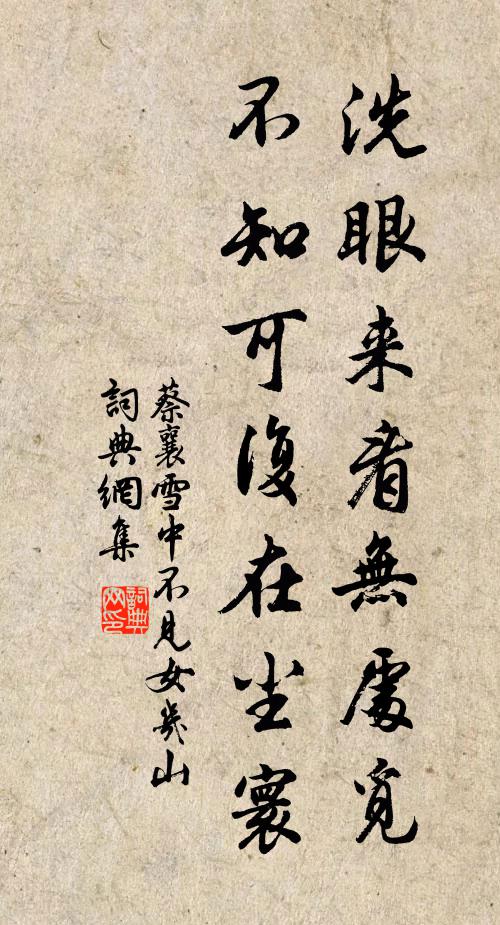 洗眼来看無處覓
不知可復在尘寰
蔡襄雪中不見女幾山
詞典網集
詞典網印